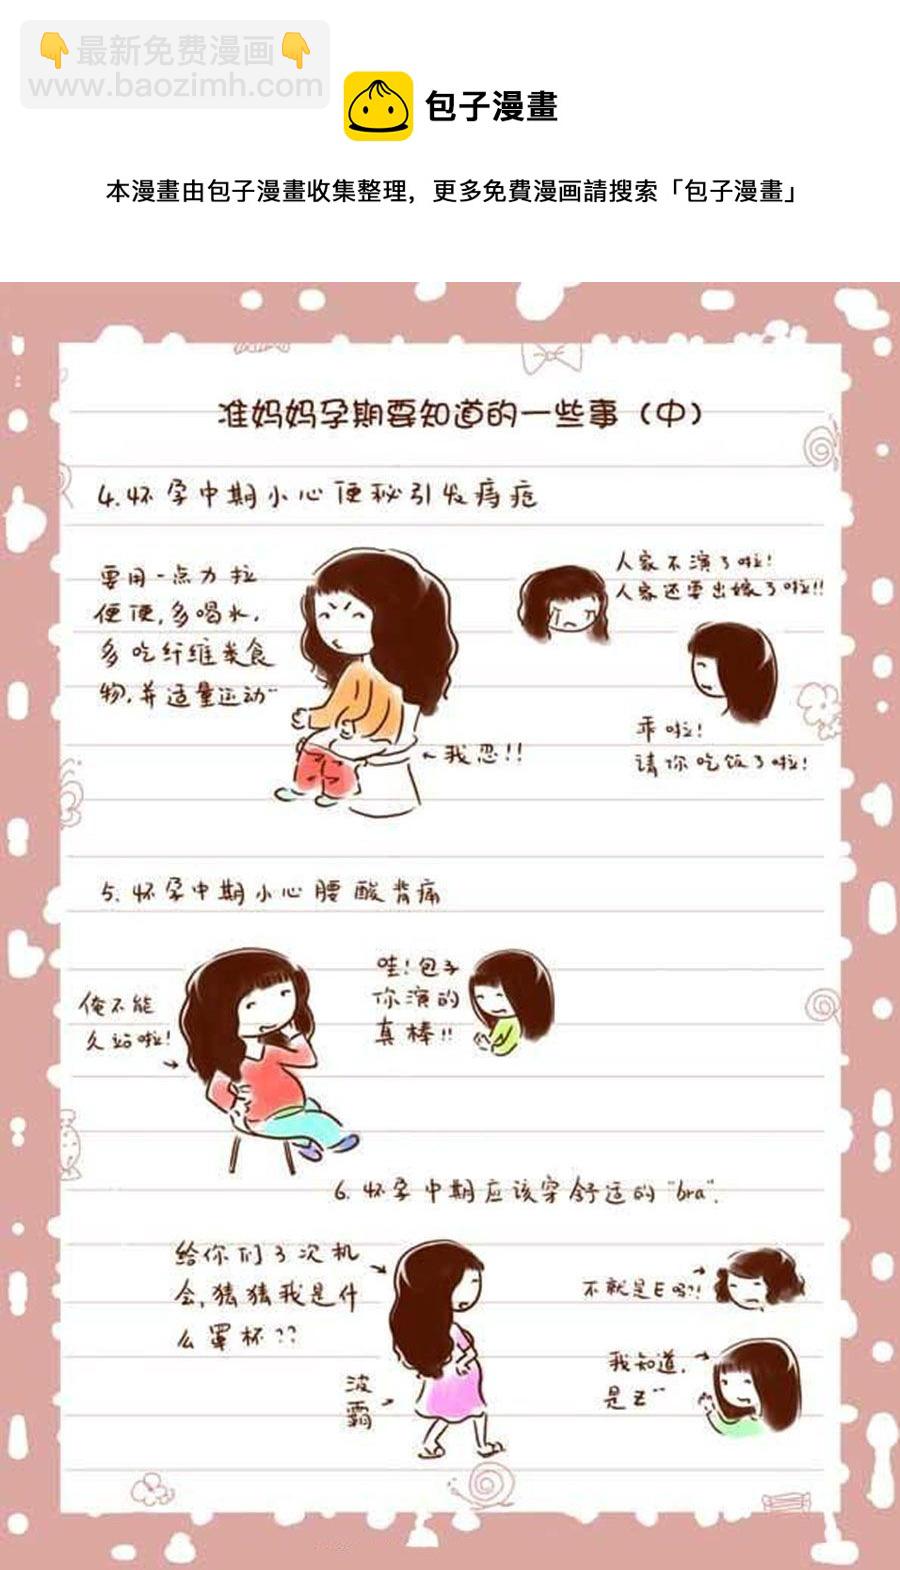 👇最新免费漫画👇
www.baozimh.com
包子漫畫
本漫畫由包子漫畫收集整理，更多免費漫画請搜索「包子漫畫」
准妈妈孕期要知道的一些事（中）
4.怀孕中期小心便秘引发痔疮
要用一点力拉
便便,多喝水,
多吃纤维类食
物,并适量运动
←我忍!!
人家不演了啦!
人家还要出嫁了啦!!
乖啦!
请你吃饭了啦!
5.怀孕中期小心腰酸背痛
俺不能
久站啦!
哇!包子
你演的
真棒!!
6.怀孕中期应该穿舒适的"bra".
给你们3次机
会,猜猜我是什
么罩杯??
波
霸
不就是E吗?!
我知道,
是Z